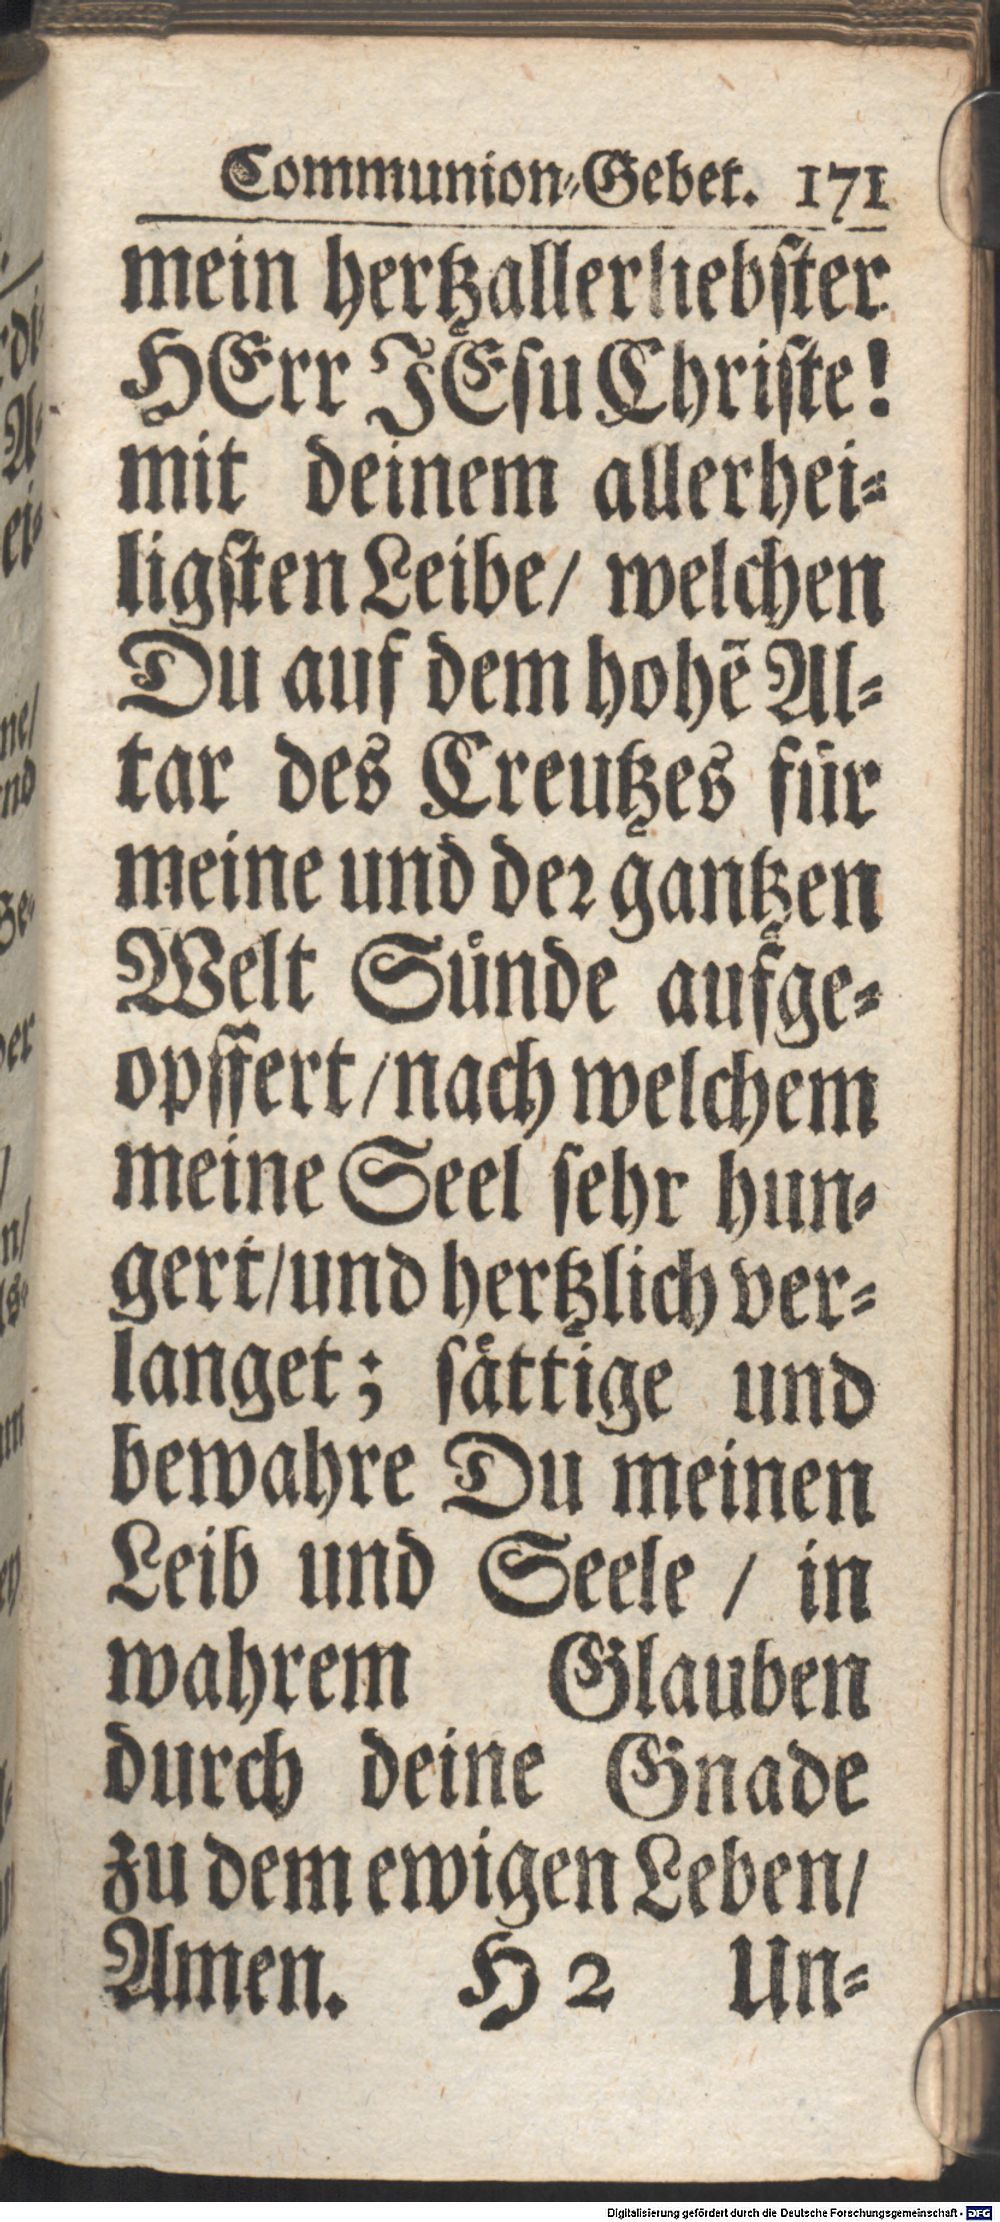 Communion-Gebet. 171
mein hertzallerliebster
HErr JEsu Christe!
mit deinem allerhei-
ligsten Leibe/ welchen
Du auf dem hohẽ Al-
tar des Creutzes für
meine und der gantzen
Welt Sünde aufge-
opffert/nach welchem
meine Seel sehr hun-
gert/und hertzlich ver-
langet; sättige und
bewahre Du meinen
Leib und Seele / in
wahrem Glauben
durch deine Gnade
zu dem ewigen Leben/
Amen. H 2 Un-
Digitalisierung gefördert durch die Deutsche Forschungsgemeinschaft - DFG